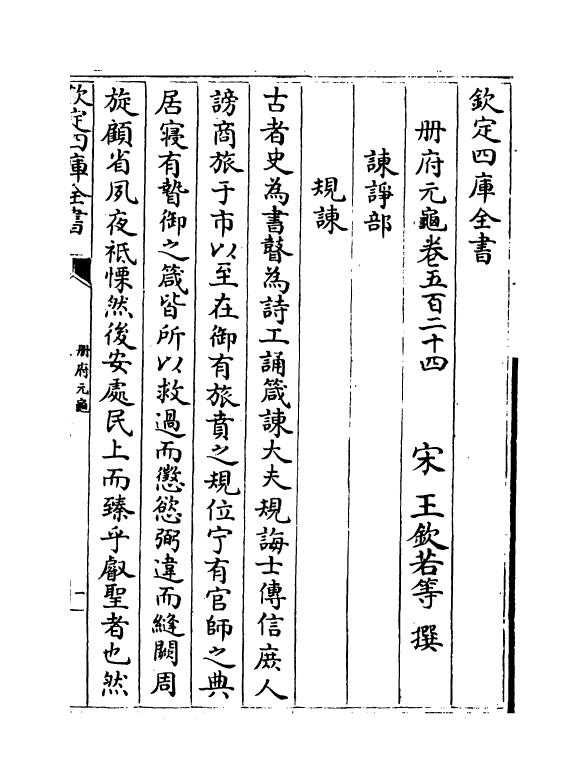 欽定四庫全書
册府元龜卷五百二十四
宋 王欽若等 撰
諫諍部
規諫
古者史為書瞽為詩工誦箴諫大夫規誨士傳信庶人
謗商旅于市以至在御有旅賁之規位宁有官師之典
居寝有暬御之箴皆所以救過而懲慾弼違而縫闕周
旋顧省夙夜祗慄然後安處民上而臻乎叡聖者也然
欽定四庫全書
册府元龜
一